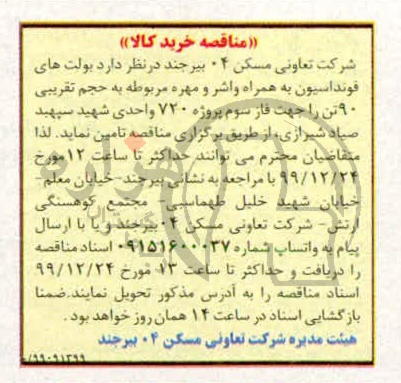 «مناقصه خرید کالا»
شرکت تعاونی مسکن ۰۴ بیرجند درنظر دارد بولت های
فونداسیون به همراه واشر و مهره مربوطه به حجم تقریبی
۹۰تن را جهت فاز سوم پروژه ۷۲۰ واحدی شهید سپهبد
صیاد شیرازی، از طریق برگزاری مناقصه تامین نماید. لذا
متقاضیان محترم می توانند حداکثر تا ساعت ۱۲مورخ
۹۹/۱۲/۲۴ با مراجعه به نشانی بیرجند-خیابان معلم-
خیابان شهید خلیل طهماسبی- مجتمع کوهسنگی
ارتش- شرکت تعاونی مسکن ۰۴بیرجند و یا با ارسال
پیام به واتساپ شماره ۰۹۱۵۱۶۰۰۰۳۷ اسناد مناقصه
را دریافت و حداکثر تا ساعت ۱۳ مورخ ۹۹/۱۲/۲۴
اسناد مناقصه را به آدرس مذکور تحویل نمایند.ضمنا
بازگشایی اسناد در ساعت ۱۴ همان روز خواهد بود.
هیئت مدیره شرکت تعاونی مسکن ۰۴ بیرجند
/۹۹۰۹۱۳۹۹